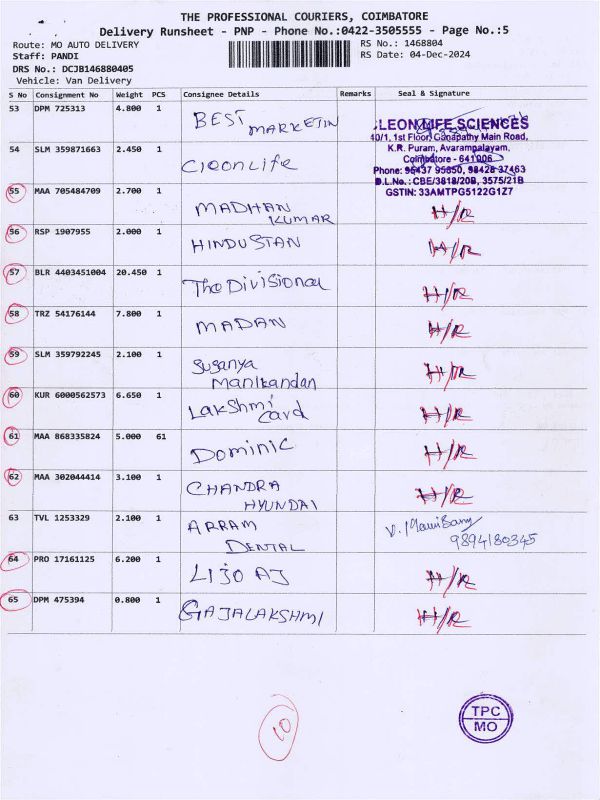 THE PROFESSIONAL COURIERS, COIMBATORE
Delivery Runsheet - PNP - Phone No.:0422-3505555 - Page No.:5
Route: MO AUTO DELIVERY
Staff: PANDI
DRS No.: DCJB146880405
Vehicle: Van Delivery
RS No.: 1468804
RS Date: 04-Dec-2024
S No Consignment No Weight PCS Consignee Details Remarks Seal & Signature
53 DPM 725313 4.800 1 BEST MARKETIN
54 SLM 359871663 2.450 1 Cleon Life
CLEON LIFE SCIENCES
40/1, 1st Floor, Ganapathy Main Road,
K.R. Puram, Avarampalayam,
Coimbatore - 641006
Phone: 95437 95650, 98428 37463
D.L.No.: CBE/3818/20B, 3575/21B
GSTIN: 33AMTPG5122G1Z7
55 MAA 705484709 2.700 1 MADHAN KUMAR H/R
56 RSP 1907955 2.000 1 HINDUSTAN H/R
57 BLR 4403451004 20.450 1 The Divisional H/R
58 TRZ 54176144 7.800 1 MADAN H/R
59 SLM 359792245 2.100 1 Suganya Manikandan H/R
60 KUR 6000562573 6.650 1 Lakshmi Card H/R
61 MAA 868335824 5.000 61 Dominic H/R
62 MAA 302044414 3.100 1 CHANDRA HYUNDAI H/R
63 TVL 1253329 2.100 1 ARRAM DENTAL 9894180345
64 PRO 17161125 6.200 1 LIJO AJ H/R
65 DPM 475394 0.800 1 GAJALAKSHMI H/R
10
TPC
MO